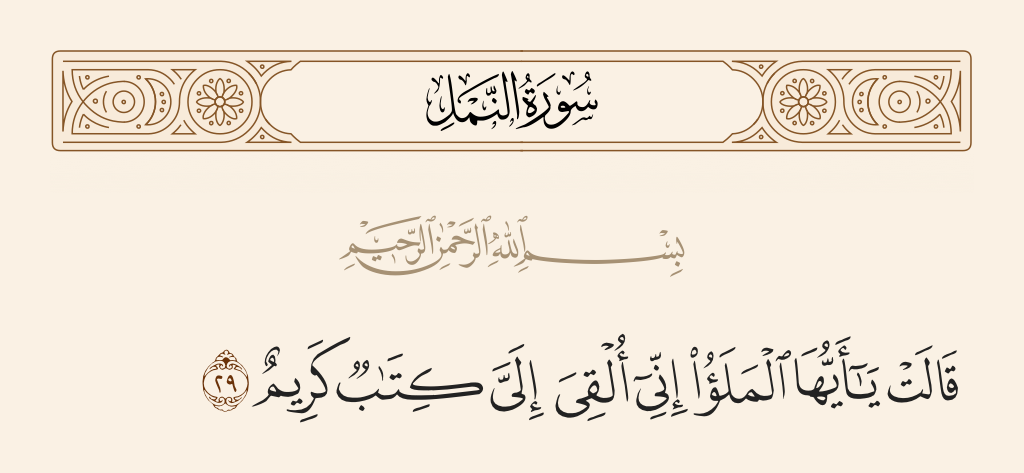 سُورَةُ النَّمۡلِ
بِسۡمِ ٱللَّهِ ٱلرَّحۡمَٰنِ ٱلرَّحِيمِ
قَالَتۡ يَٰٓأَيُّهَا ٱلۡمَلَؤُاْ إِنِّيٓ أُلۡقِيَ إِلَيَّ كِتَٰبٞ كَرِيمٌ ٢٩